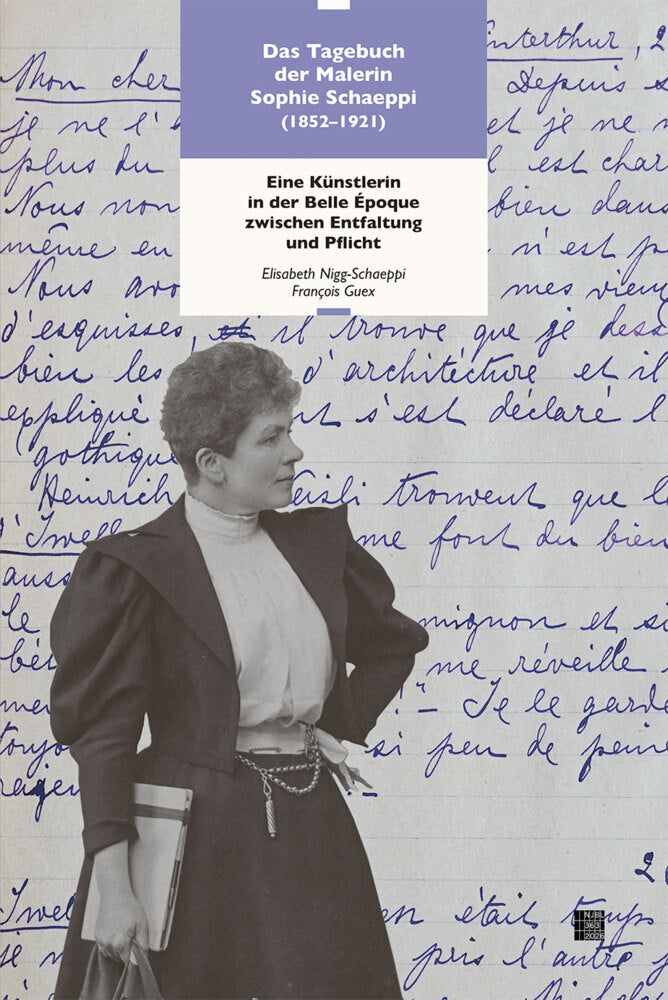 Das Tagebuch
der Malerin
Sophie Schaeppi
(1852–1921)
Eine Künstlerin
in der Belle Époque
zwischen Entfaltung
und Pflicht
Elisabeth Nigg-Schaeppi
François Guex
interthur, 2
Mon cher Depuis
je ne l'é et je ne
plus du il est char
Nous non bien dans
même en n'est p
Nous avo mes vieux
d'esquisses, et il trouve que je dess
bien les d'architécture et il
expliqué nt s'est déclaré l
gothique
Heinrich eisli trouvent que l
d'Iwell me font du bien
auss
le mignon et s
bét me réveille
mer !" - Je le garde
toujo si peu de peine
ragen
2
Iwell en était temps
je n pris l'autre
NJBL
369
2026